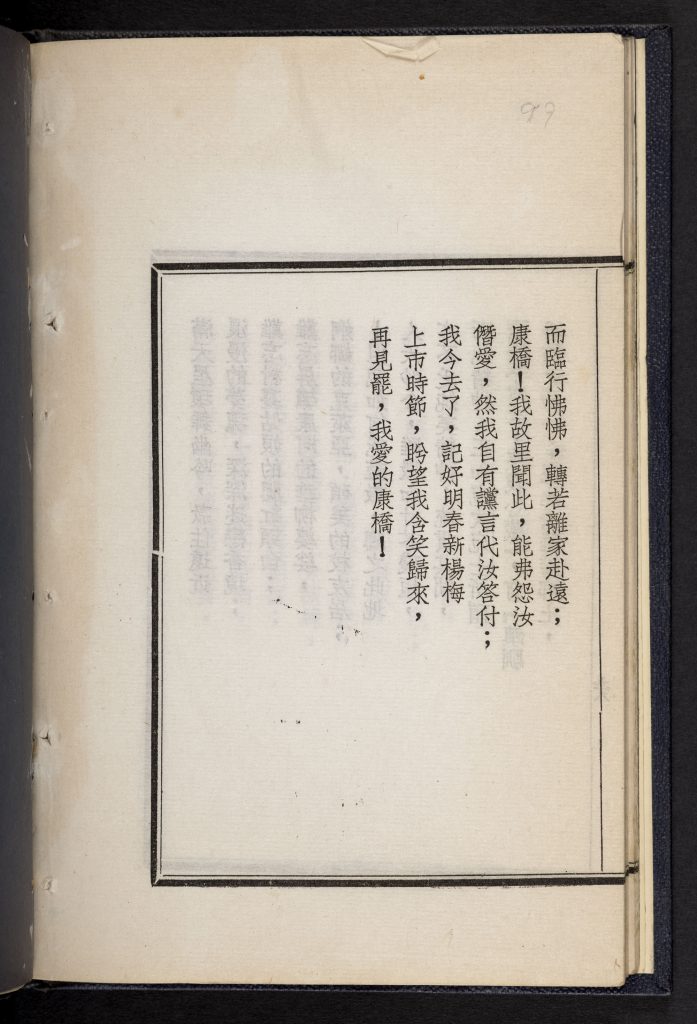 而臨行怫怫，轉若離家赴遠；
康橋！我故里聞此，能弗怨汝
僭愛，然我自有讜言代汝答付；
我今去了，記好明春新楊梅
上市時節，盼望我含笑歸來，
再見罷，我愛的康橋！